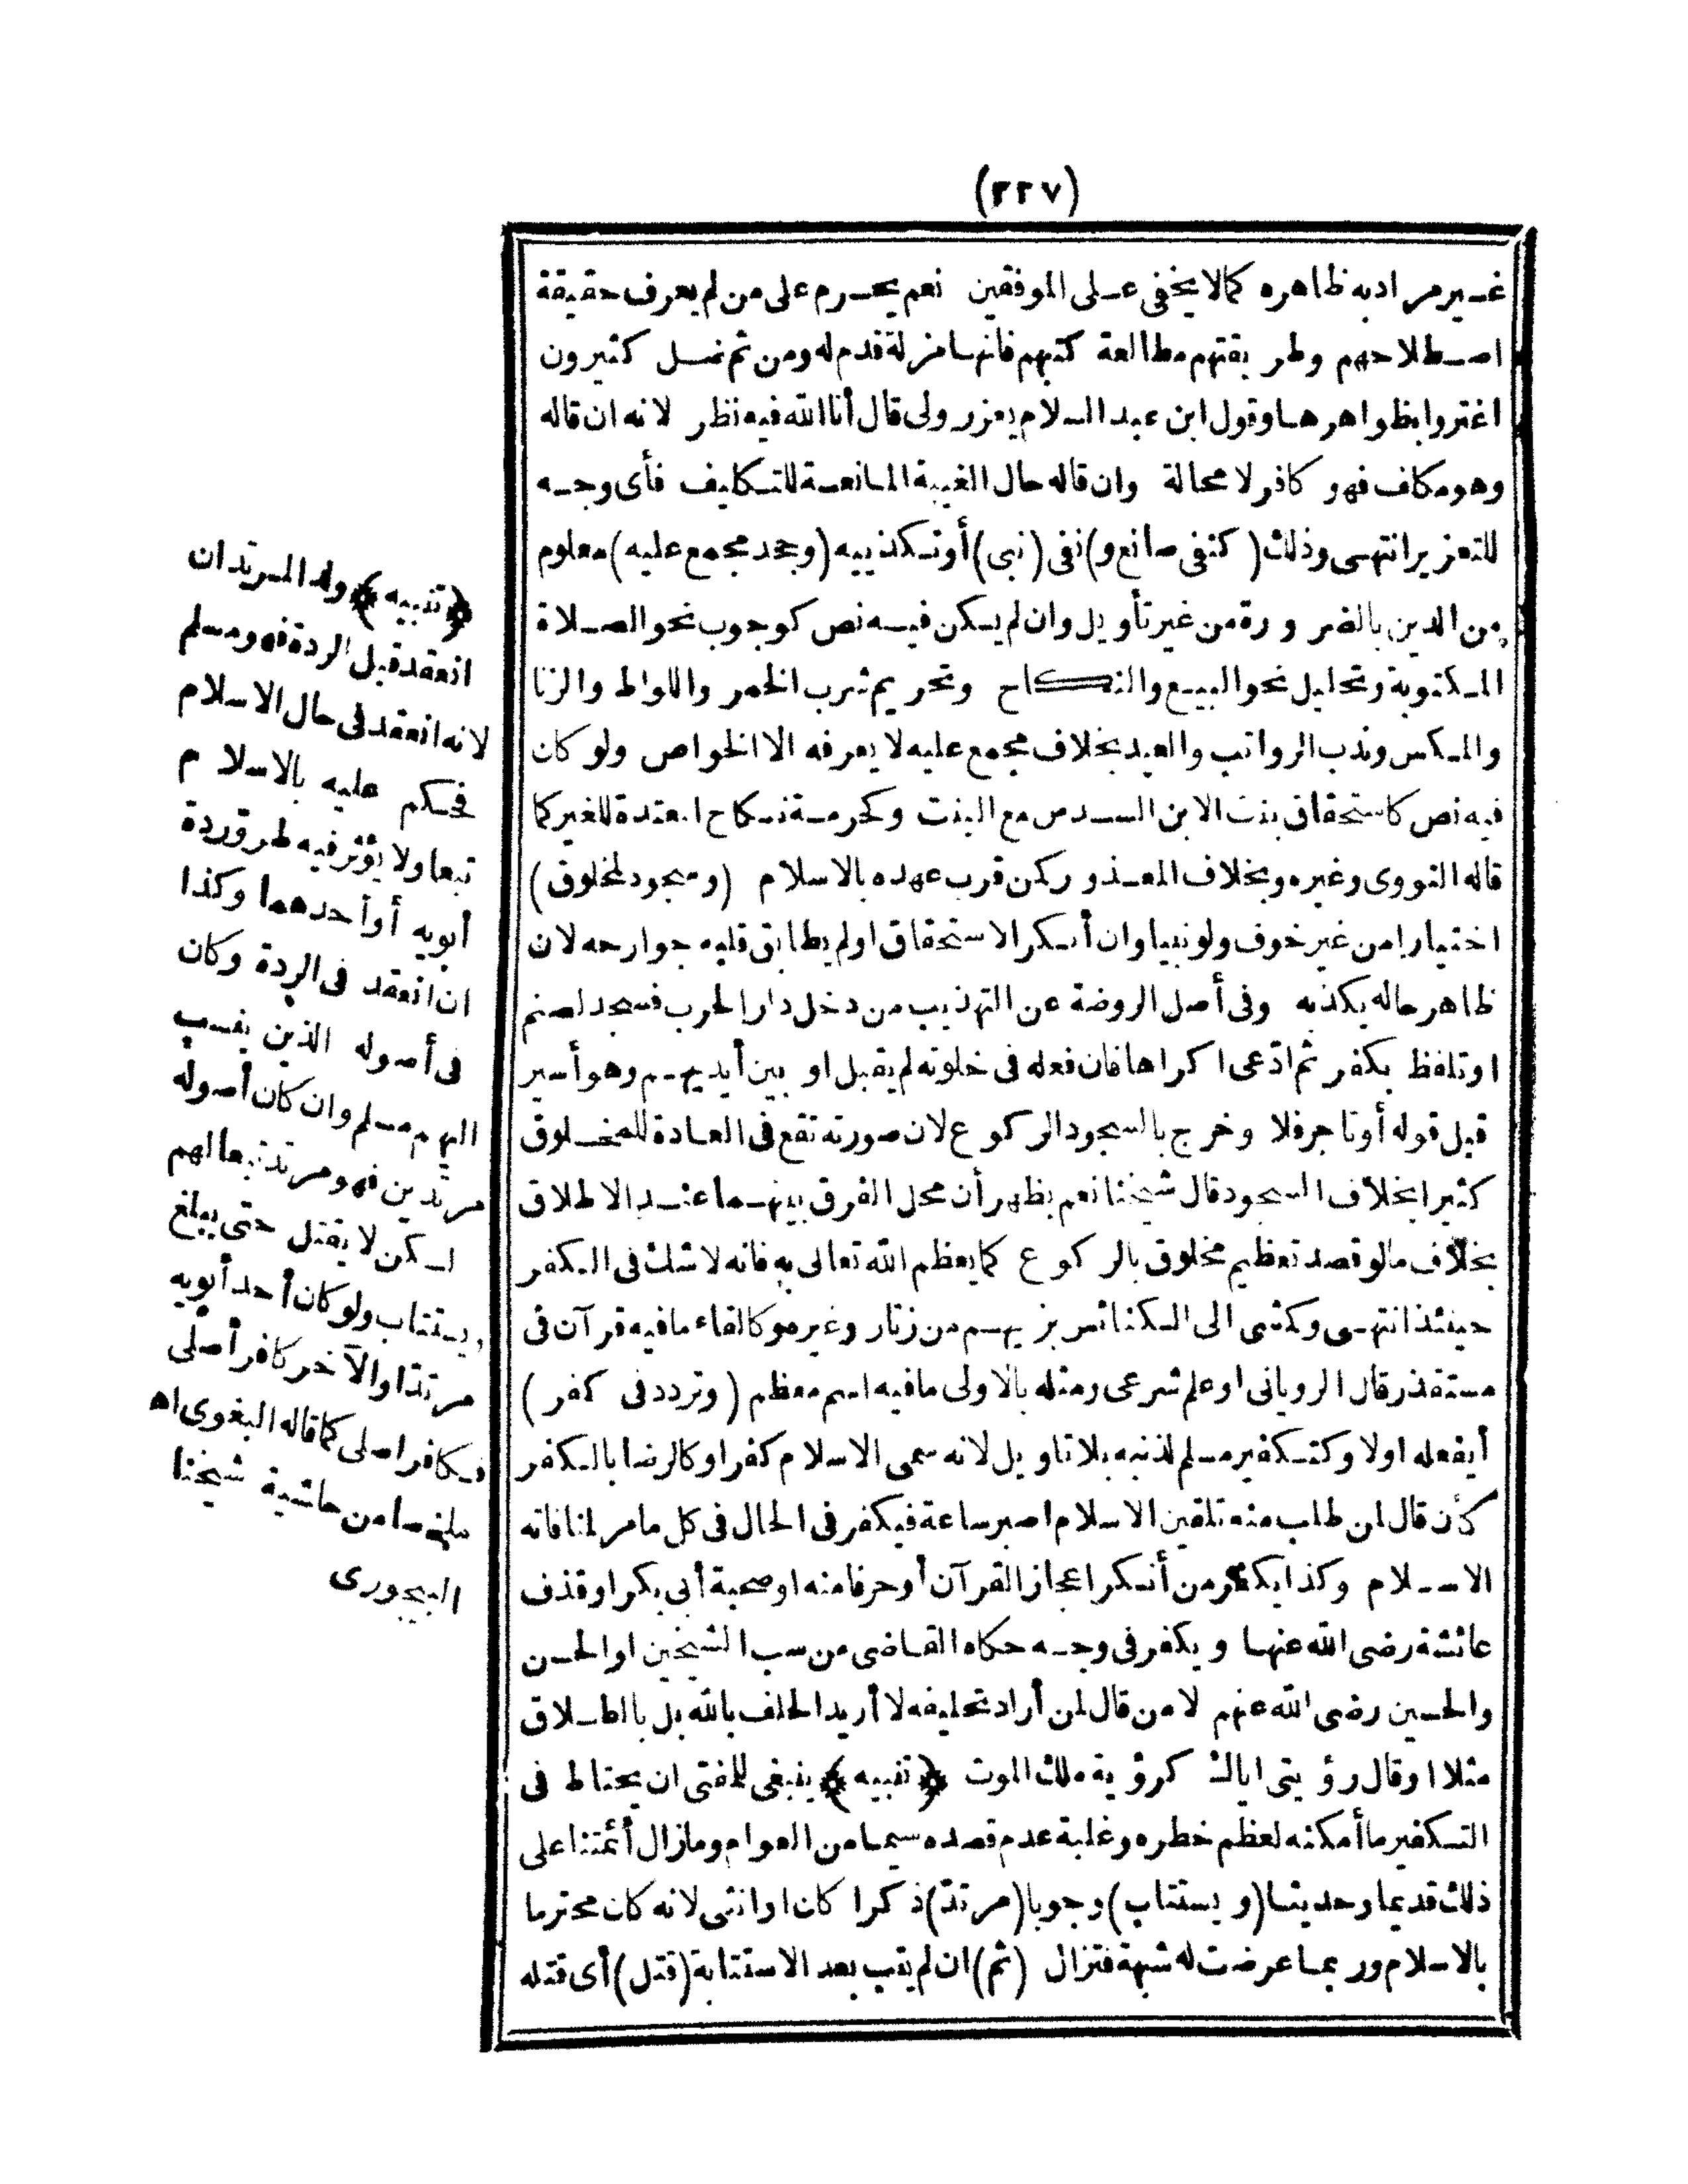 (٣٢٧)
غير مراد به ظاهره كما لا يخفى على الموفقين نعم يحرم على من لم يعرف حقيقة
اصطلاحهم وطريقتهم مطالعة كتبهم فانها مزلة قدم له ومن ثم ضل كثيرون
اغتروا بظواهرها وقول ابن عبد السلام يعزر ولى قال أنا الله فيه نظر لانه ان قاله
وهو مكلف فهو كافر لا محالة وان قاله حال الغيبة المانعة للتكليف فأى وجه
للتعزير انتهى وذلك (كنفى صانع و) نفى (نبى) أو تكذيبه (وجحد مجمع عليه) معلوم
من الدين بالضرورة من غير تأويل وان لم يكن فيه نص كوجوب نحو الصلاة
المكتوبة وتحليل نحو البيع والنكاح وتحريم شرب الخمر واللواط والزنا
والمكس وندب الرواتب والعيد بخلاف مجمع عليه لا يعرفه الا الخواص ولو كان
فيه نص كاستحقاق بنت الابن السدس مع البنت وكحرمة نكاح المعتدة للغير كما
قاله النووى وغيره وبخلاف المعذور كمن قرب عهده بالاسلام (وسجود لمخلوق)
اختيارا من غير خوف ولو نبيا وان أنكر الاستحقاق او لم يطابق قلبه جوارحه لان
ظاهر حاله يكذبه وفى أصل الروضة عن التهذيب من دخل دار الحرب فسجد لصنم
او تلفظ بكفر ثم ادّعى اكراها فان فعله فى خلوته لم يقبل او بين أيديهم وهو أسير
قبل قوله أو تاجر فلا وخرج بالسجود الركوع لان صورته تقع فى العادة للمخلوق
كثيرا بخلاف السجود قال شيخنا نعم يظهر أن محل الفرق بينهما عند الاطلاق
بخلاف ما لو قصد تعظيم مخلوق بالركوع كما يعظم الله تعالى به فانه لا شك فى الكفر
حينئذ انتهى وكمشى الى الكنائس بزيهم من زنار وغيره وكالقاء ما فيه قرآن فى
مستقذر قال الرويانى او علم شرعى ومثله بالاولى ما فيه اسم معظم (وتردد فى كفر)
أيفعله اولا وكتكفير مسلم لذنبه بلا تاويل لانه سمى الاسلام كفرا وكالرضا بالكفر
كأن قال لمن طلب منه تلقين الاسلام اصبر ساعة فيكفر فى الحال فى كل ما مر لمنافاته
الاسلام وكذا يكفر من أنكر اعجاز القرآن أو حرفا منه او صحبة أبى بكر او قذف
عائشة رضى الله عنها ويكفر فى وجه حكاه القاضى من سب الشيخين او الحسن
والحسين رضى الله عنهم لا من قال لمن أراد تحليفه لا أريد الحلف بالله بل بالطلاق
مثلا او قال رؤيتى اياك كرؤية ملك الموت ﴿تنبيه﴾ ينبغى للمفتى ان يحتاط فى
التكفير ما أمكنه لعظم خطره وغلبة عدم قصده سيما من العوام وما زال أئمتنا على
ذلك قديما وحديثا (ويستتاب) وجوبا (مرتدّ) ذكرا كان او انثى لانه كان محترما
بالاسلام وربما عرضت له شبهة فتزال (ثم) ان لم يتب بعد الاستتابة (قتل) أى قتله
﴿تنبيه﴾ ولد المرتد ان
انعقد قبل الردة فهو مسلم
لانه انعقد فى حال الاسلام
فحكم عليه بالاسلام
تبعا ولا يؤثر فيه طرو ردة
أبويه أو أحدهما وكذا
ان انعقد فى الردة وكان
فى أصوله الذين ينسب
اليهم مسلم وان كان أصوله
مرتدين فهو مرتد تبعا لهم
لكن لا يقتل حتى يبلغ
ويستتاب ولو كان أحد أبويه
مرتدا والآخر كافر أصلى
فكافر اصلى كما قاله البغوى اه
ملخصا من حاشية شيخنا
البيجورى